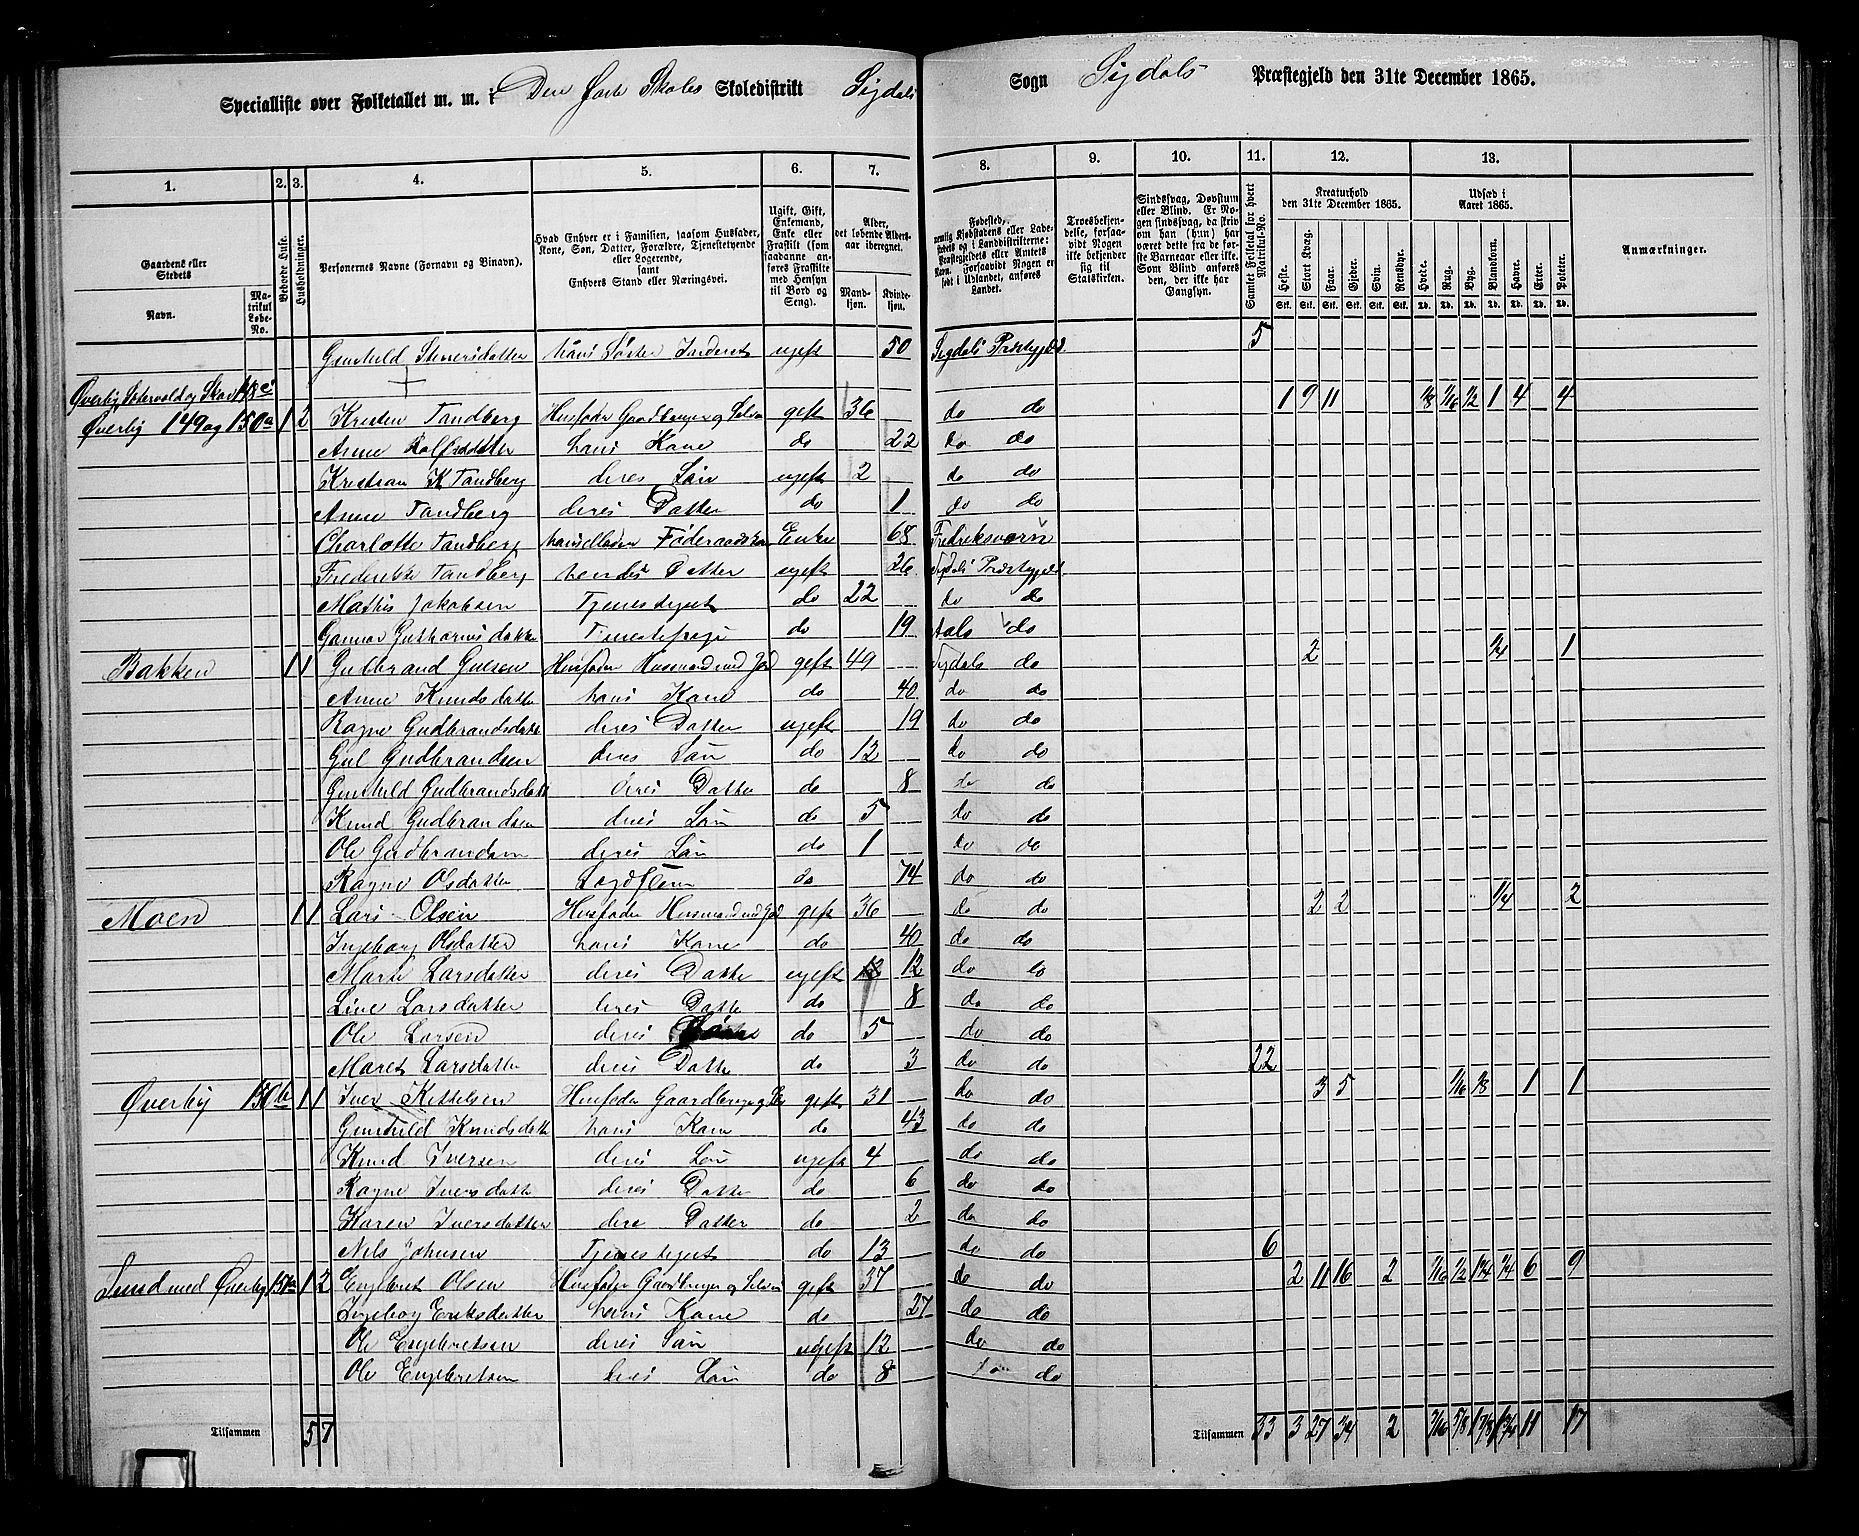 Specialliste over Folketallet m. m. i Den Skoles Skoledistrikt Sigdals Sogn Sigdals Præstegjeld den 31te December 1865.
1. 2. 3. 4. 5. 6. 7. 8. 9. 10. 11. 12. 13.
Gaardens eller Stedets
Navn. Matrikul Løbe-No.
Beboede Huse.
Husholdninger.
Personernes Navne (Fornavn og Binavn).
Hvad Enhver er i Familien, saasom Husfader, Kone, Søn, Datter, Forældre, Tjenestetyende eller Logerende, samt Enhvers Stand eller Næringsvei.
Ugift, Gift, Enkemand, Enke eller Fraskilt (som saadanne anføres Fraskilte med Hensyn til Bord og Seng).
Alder, det løbende Aldersaar iberegnet.
Mandkjøn. Kvindekjøn.
Fødested, nemlig Kjøbstadens eller Ladestedets og i Landdistrikterne: Præstegjeldets eller Amtets Navn. Forsaavidt Nogen er født i Udlandet, anføres Landet.
Troesbekjendelse, forsaavidt Nogen ikke bekjender sig til Statskirken.
Sindssvag, Døvstum eller Blind. Er Nogen sindssvag, da skriv om han (hun) har været dette fra de første Barneaar eller ikke. Som Blind anføres den, der ikke har Gangsyn.
Samlet Folketal for hvert Matrikul-No.
Kreaturhold den 31te December 1865.
Heste. Stort Kvæg. Faar. Gjeder. Svin. Rensdyr.
Udsæd i Aaret 1865.
Hvede. Rug. Byg. Blandkorn. Havre. Erter. Poteter.
Anmærkninger.
Gunhild Stenersdatter hans Søster Inderst ugift 50 Sigdals Præstegjeld 5
Øverby, Sætervold og 1 9 11 1/8 1/16 1/2 1 4 4
Øverby 149 og 150a 1 2 Kristen Tandberg Husfader Gaardbruger og gift 36 do do
Anne hans Kone do 22 do do
Kristian K Tandberg deres Søn ugift 2 do do
Anne Tandberg deres Datter do 1 do do
Charlotte Tandberg Enke 68 Fredriksværn
Frederikke Tandberg hendes Datter ugift 26 Sigdals Præstegjeld
Mathis Jakobsen Tjenestegut do 22 do do
Guttormsdatter Tjenestepige do 19 Aals do
Bakken 1 1 Gudbrand Gulsen Husfader Husmand med Jord gift 49 Sigdals do 2 1/4 1
Anne Knudsdatter hans Kone do 40 do do
Ragne Gudbrandsdatt deres Datter ugift 19 do do
Gul Gudbrandsen deres Søn do 12 do do
Gunhild Gudbrandsdatt deres Datter do 8 do do
Knud Gudbrandsen deres Søn do 5 do do
Ole Gudbrandsen deres Søn do 1 do do
Ragne Olsdatter do 74 do do
Moen 1 1 Lars Olsen Husfader Husmand med Jord gift 36 do do 2 2 1/4 2
Ingeborg Olsdatter hans Kone do 40 do do
Marte Larsdatter deres Datter ugift 12 do do
Line Larsdatter deres Datter do 8 do do
Ole Larsen deres do 5 do do
Maret Larsdatter deres Datter do 3 do do 22
Øverby 150b 1 1 Iver Kittelsen Husfader Gaardbruger og gift 31 do do 3 5 1/16 1/8 1 1
Gunhild Knudsdatter hans Kone do 43 do do
Knud Iversen deres Søn ugift 4 do do
Ragne Iversdatter deres Datter do 6 do do
Karen Iversdatter dere Datter do 2 do do
Nils Johnsen Tjenestegut do 13 do do 6
Lund med Øverby 151a 1 2 Engebret Olsen Husfader Gaardbruger og Selveier gift 37 do do 2 11 16 2 1/16 1/2 1 1/4 1/4 6 9
Ingeborg Eriksdatter hans Kone do 27 do do
Ole Engebretsen deres Søn ugift 12 do do
Ole Engebretsen deres Søn do 8 do do
Tilsammen 5 7 Tilsammen 33 3 27 34 2 17